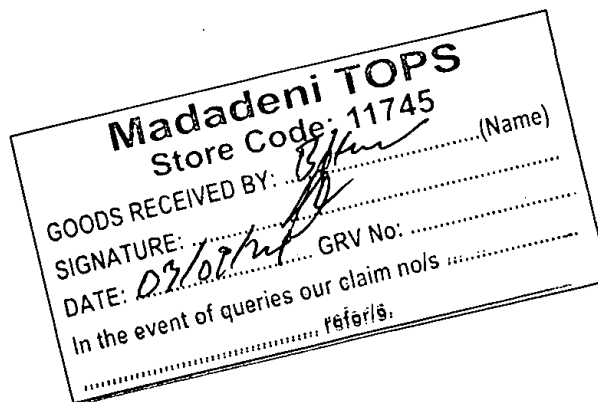 Madadeni TOPS
Store Code: 11745
GOODS RECEIVED BY: ........................(Name)
SIGNATURE: ........................
DATE: 03/09/24 ............ GRV No: ........................
In the event of queries our claim no/s ........................
........................ refer/s.